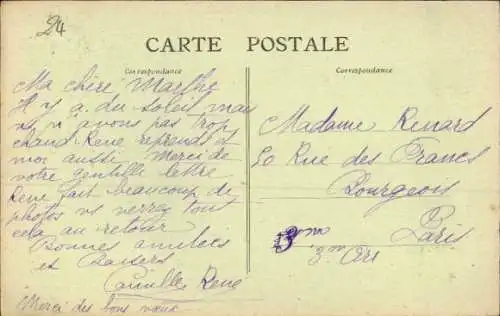 24
CARTE POSTALE
Correspondance
Correspondance
Ma chère Marthe
Il y a du soleil mais
ns n'avons pas trop
chaud René reprends et
moi aussi Merci de
votre gentille lettre
René fait beaucoup de
photos vs verrez tout
cela au retour
Bonnes amitiés
et Baisers
Camille René
Merci des bons vœux
Madame Renard
50 Rue des Francs
Bourgeois
Paris
3 me Arr